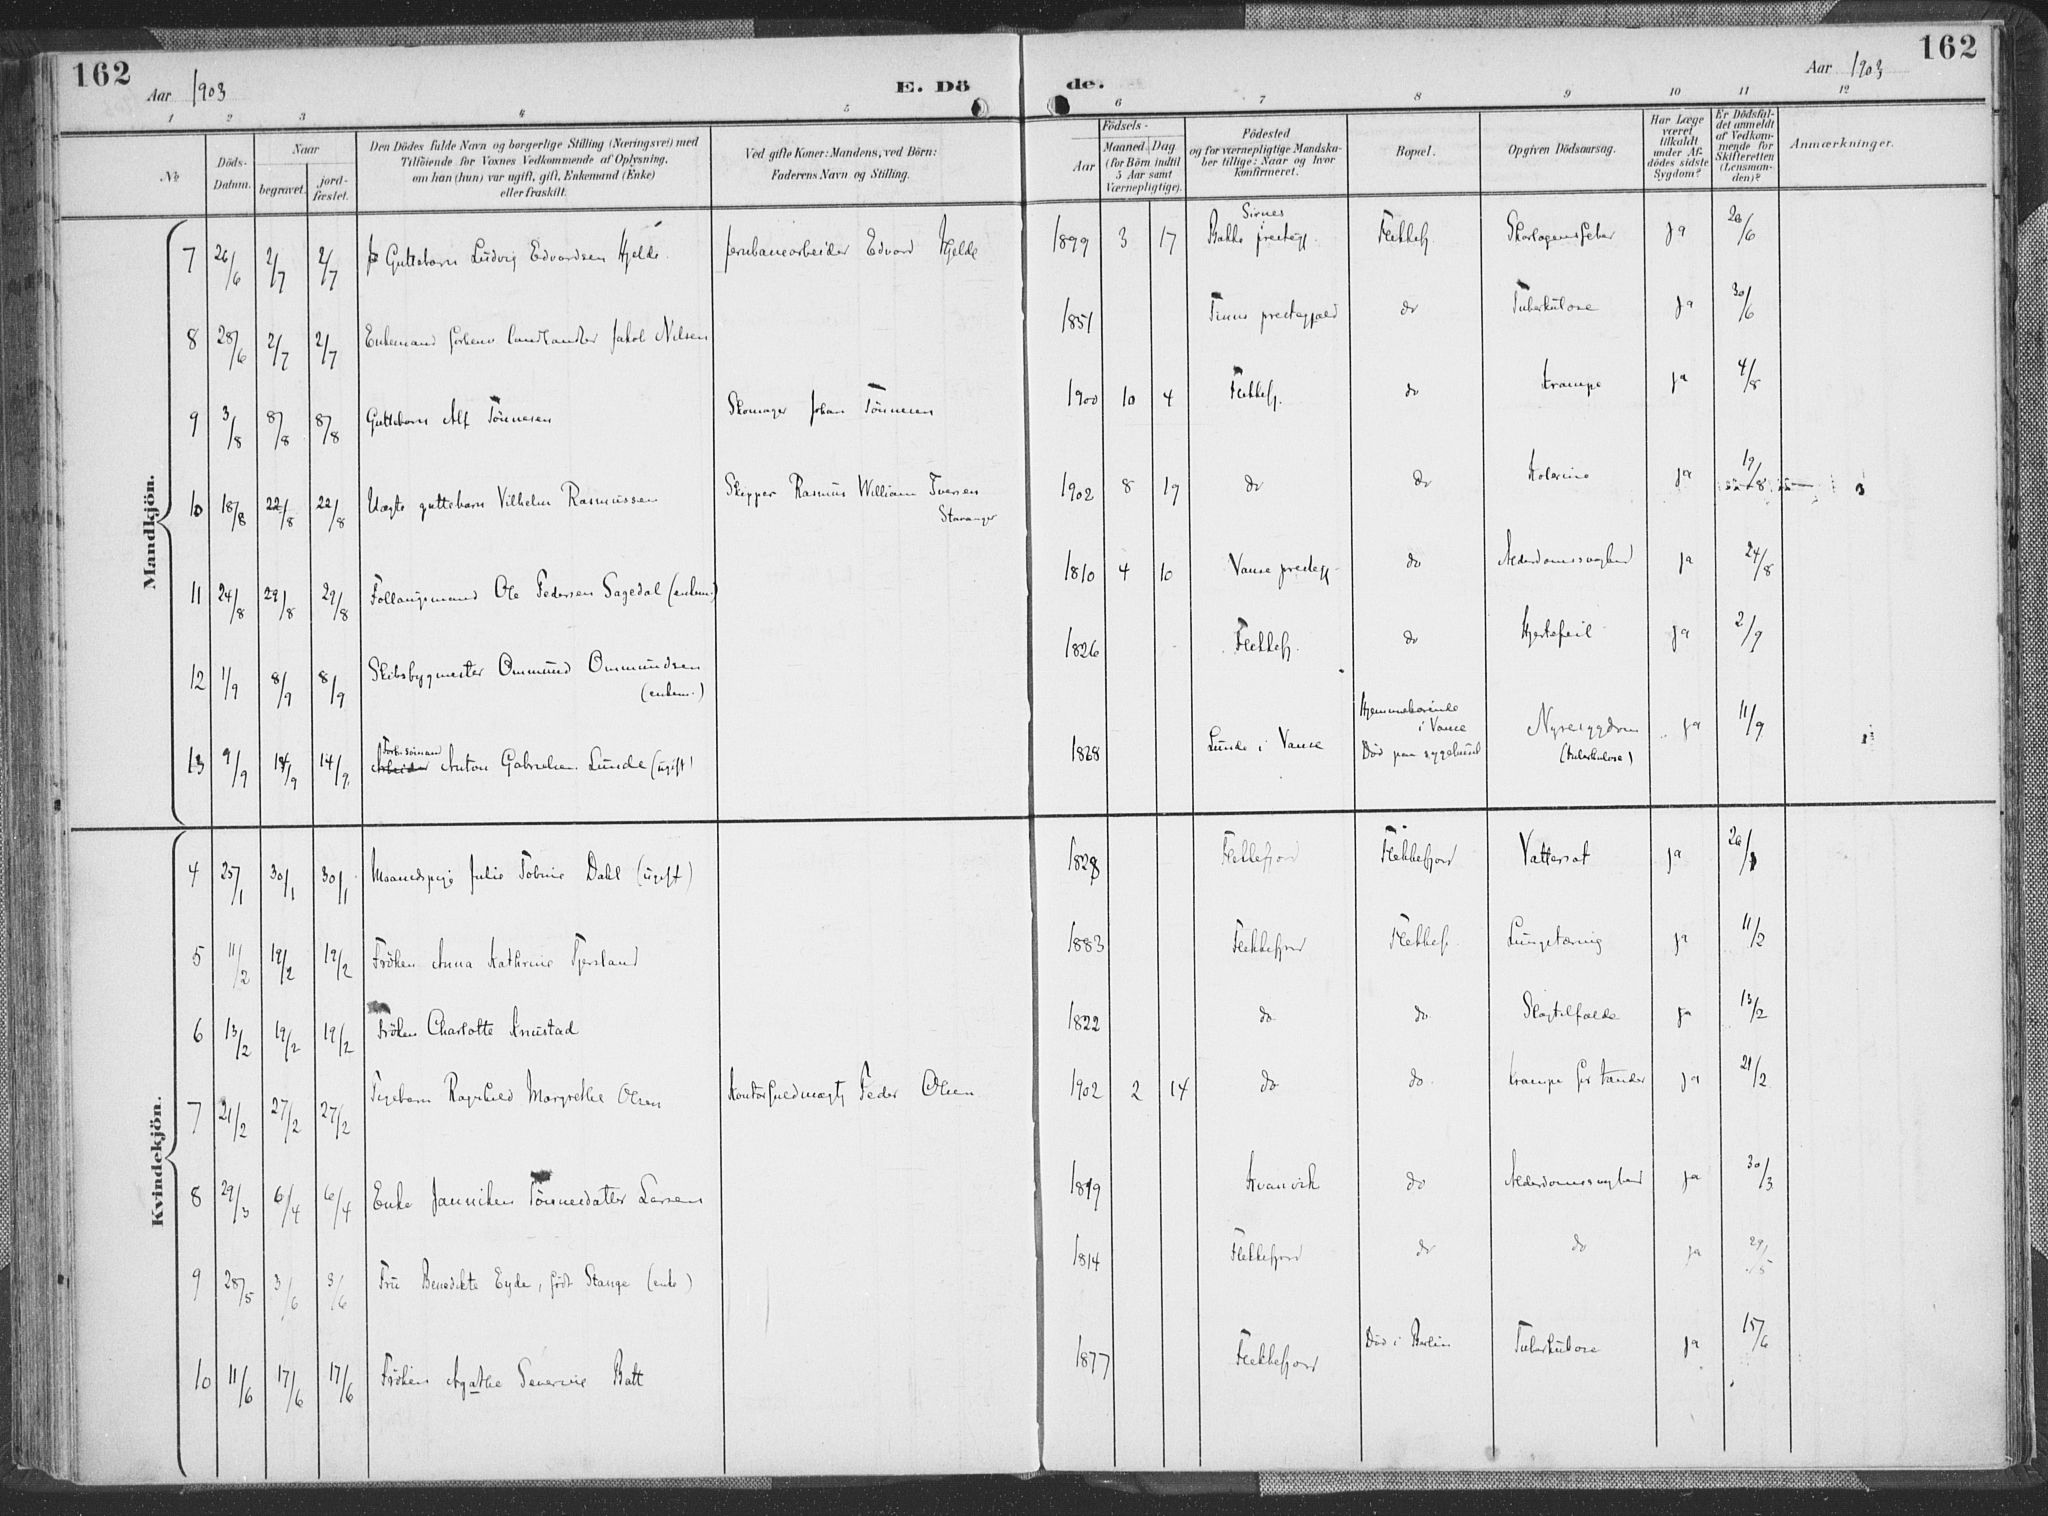 162
Aar 1903
E. Dö
de.
Aar 1903
162
1 2 3 4 5 6 7 8 9 10 11 12
No
Döds-Datum.
Naar
begravet.
jord-fæstet.
Den Dödes fulde Navn og borgerlige Stilling (Næringsvei) med
Tilföiende for Voxnes Vedkommende af Oplysning,
om han (hun) var ugift, gift, Enkemand (Enke)
eller fraskilt.
Ved gifte Koner: Mandens, ved Börn:
Faderens Navn og Stilling.
Födsels-
Aar
Maaned Dag
(for Börn indtil
5 Aar samt
Værnepligtige).
Födested
og for værnepligtige Mandska-
ber tillige: Naar og hvor
konfirmeret.
Bopæl.
Opgiven Dödsaarsag.
Har Læge
været
tilkaldt
under Af-
dödes sidste
Sygdom?
Er Dödsfal-
det anmeldt
af Vedkom-
mende for
Skifteretten
(Lensman-
den)?
Anmærkninger.
Mandkjön.
7 26/6 2/7 2/7 Guttebarn Ludvig Edvardsen Hjelde. Jernbanearbeider Edvard Hjelde 1899 3 17 Sirnes Bakke prestegj. Flekkefj. Skarlagensfeber ja 26/6
8 28/6 2/7 2/7 Enkemand Jakob Nilsen 1851 Finnø prestegjæld do Tuberkulose ja 30/6
9 3/8 8/8 8/8 Guttebarn Alf Tönnesen Skomager Johan Tönnesen 1900 10 4 Flekkefj. do Krampe ja 4/8
10 18/8 22/8 22/8 Uægte guttebarn Vilhelm Rasmussen Skipper Rasmus William Iversen
Stavanger 1902 8 19 do do Kolerine ja 19/8
11 24/8 29/8 29/8 Follaugsmand Ole Pedersen Sagedal (enkem.) 1810 4 10 Vanse prestegj. do Alderdomssvaghed ja 24/8
12 1/9 8/9 8/9 Skibsbygmester Ommund Ommundsen
(enkem.) 1826 Flekkefj. do Hjertefeil ja 2/9
13 9/9 14/9 14/9 Arbeider Anton Gabrielsen Lunde (ugift) 1868 Lunde i Vanse Hjemmehörende
i Vanse
Död paa sygehuset Nyresygdom
(tuberkulose) ja 11/9
Kvindekjön.
4 25/1 30/1 30/1 Julie Tobine Dahl (ugift) 1828 Flekkefjord Flekkefjord Vattersot ja 26/1
5 11/2 19/2 19/2 Fröken Anna Kathrine Tjersland 1883 Flekkefjord Flekkefj. Lungetæring ja 11/2
6 13/2 19/2 19/2 Fröken Charlotte Anustad 1822 do do Slagtilfælde ja 13/2
7 21/2 27/2 27/2 Pigebarn Ragnhild Margrethe Olsen Kontorfuldmægtig Peder Olsen 1902 2 14 do do Krampe for tænder ja 21/2
8 29/3 6/4 6/4 Enke Janniken Tönnesdatter Larsen 1819 Kvanvik do Alderdomssvaghed ja 30/3
9 28/5 3/6 3/6 Fru Benedikte Eyde, födt Stange (enke) 1814 Flekkefjord do do ja 29/5
10 11/6 17/6 17/6 Fröken Agathe Severine Batt 1877 Flekkefjord Död i Berlin Tuberkulose ja 15/6